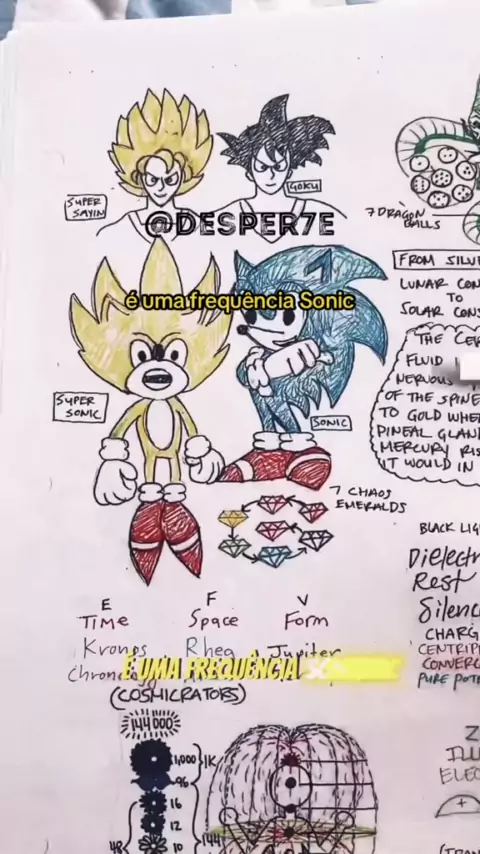 SUPER
SAYIN
GOKU
@DESPER7E
7 DRAGON
BALLS
é uma frequência Sonic
FROM SILVE
LUNAR CON
TO
SOLAR CONS
THE CER
FLUID
NERVOUS
OF THE SPINE
TO GOLD WHE
PINEAL GLAN
MERCURY RIS
IT WOULD IN
SUPER
SONIC
SONIC
7 CHAOS
EMERALDS
BLACK LIG
Dielectr
Rest
Silenc
CHARG
CENTRIP
CONVERG
PURE POT
E F V
TIME Space Form
Kronos Rhea Jupiter
É UMA FREQUÊNCIA
(COSMICRATORS)
144000
1,000 1K
96
16
12
10
48
144
Z
ILLU
ELEC